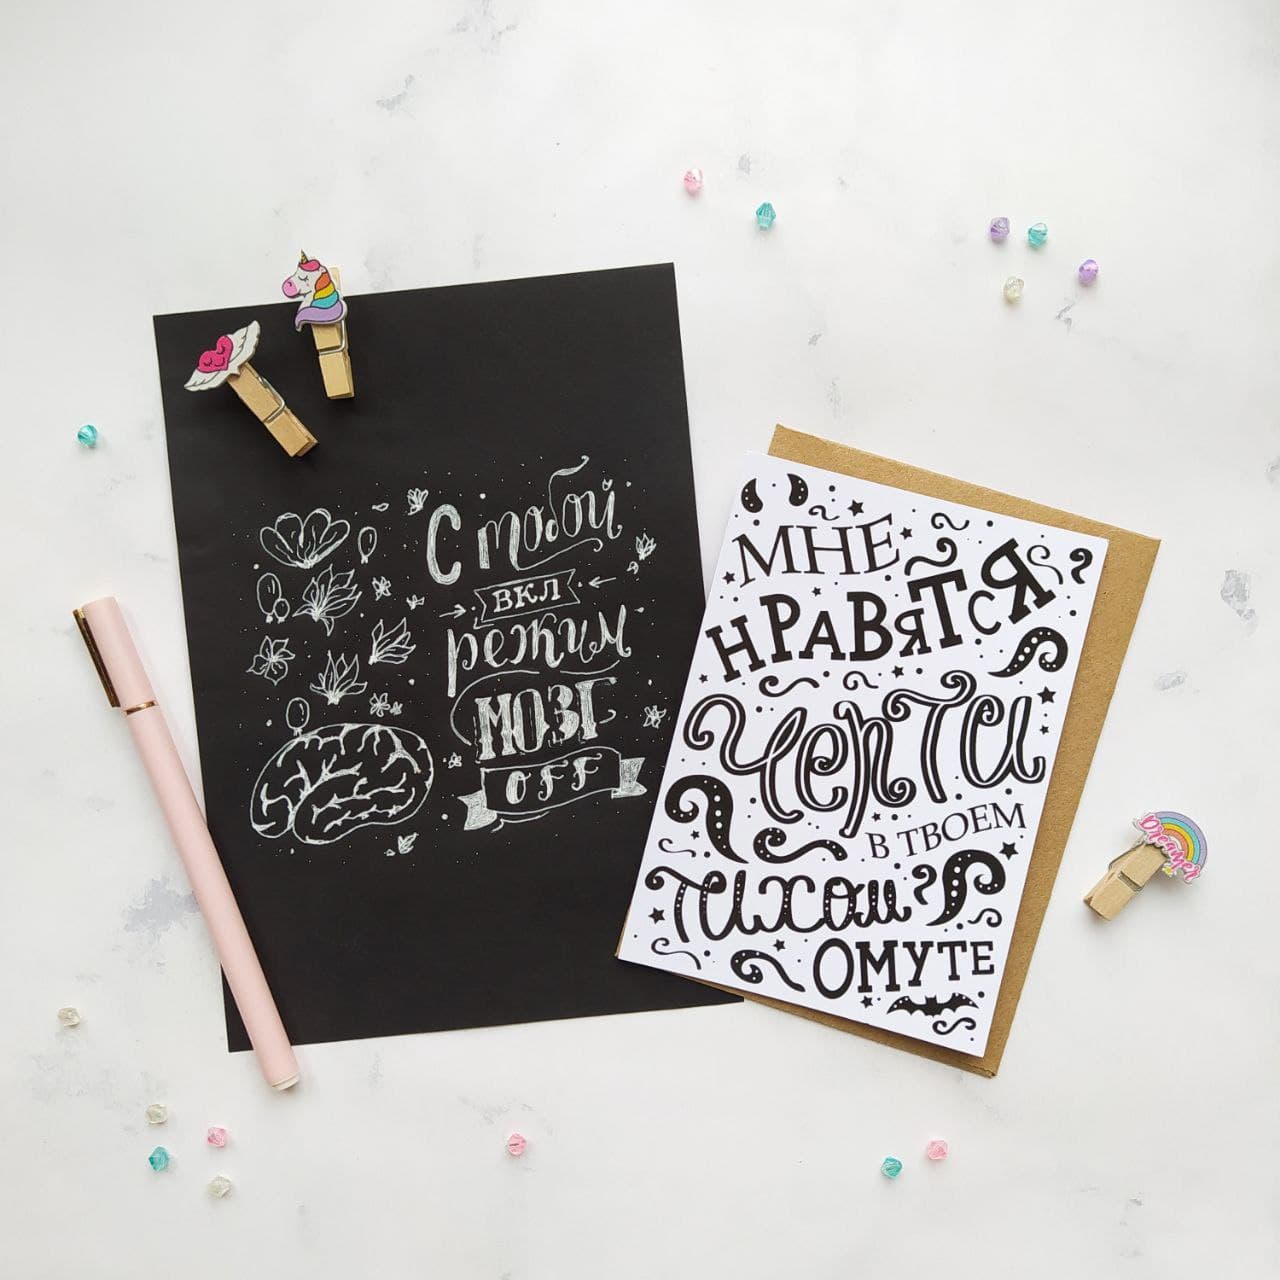 С тобой
ВКЛ
режим
МОЗГ
OFF
МНЕ
НРАВЯТСЯ
Черти
В ТВОЕМ
тихом
ОМУТЕ
Dreamer